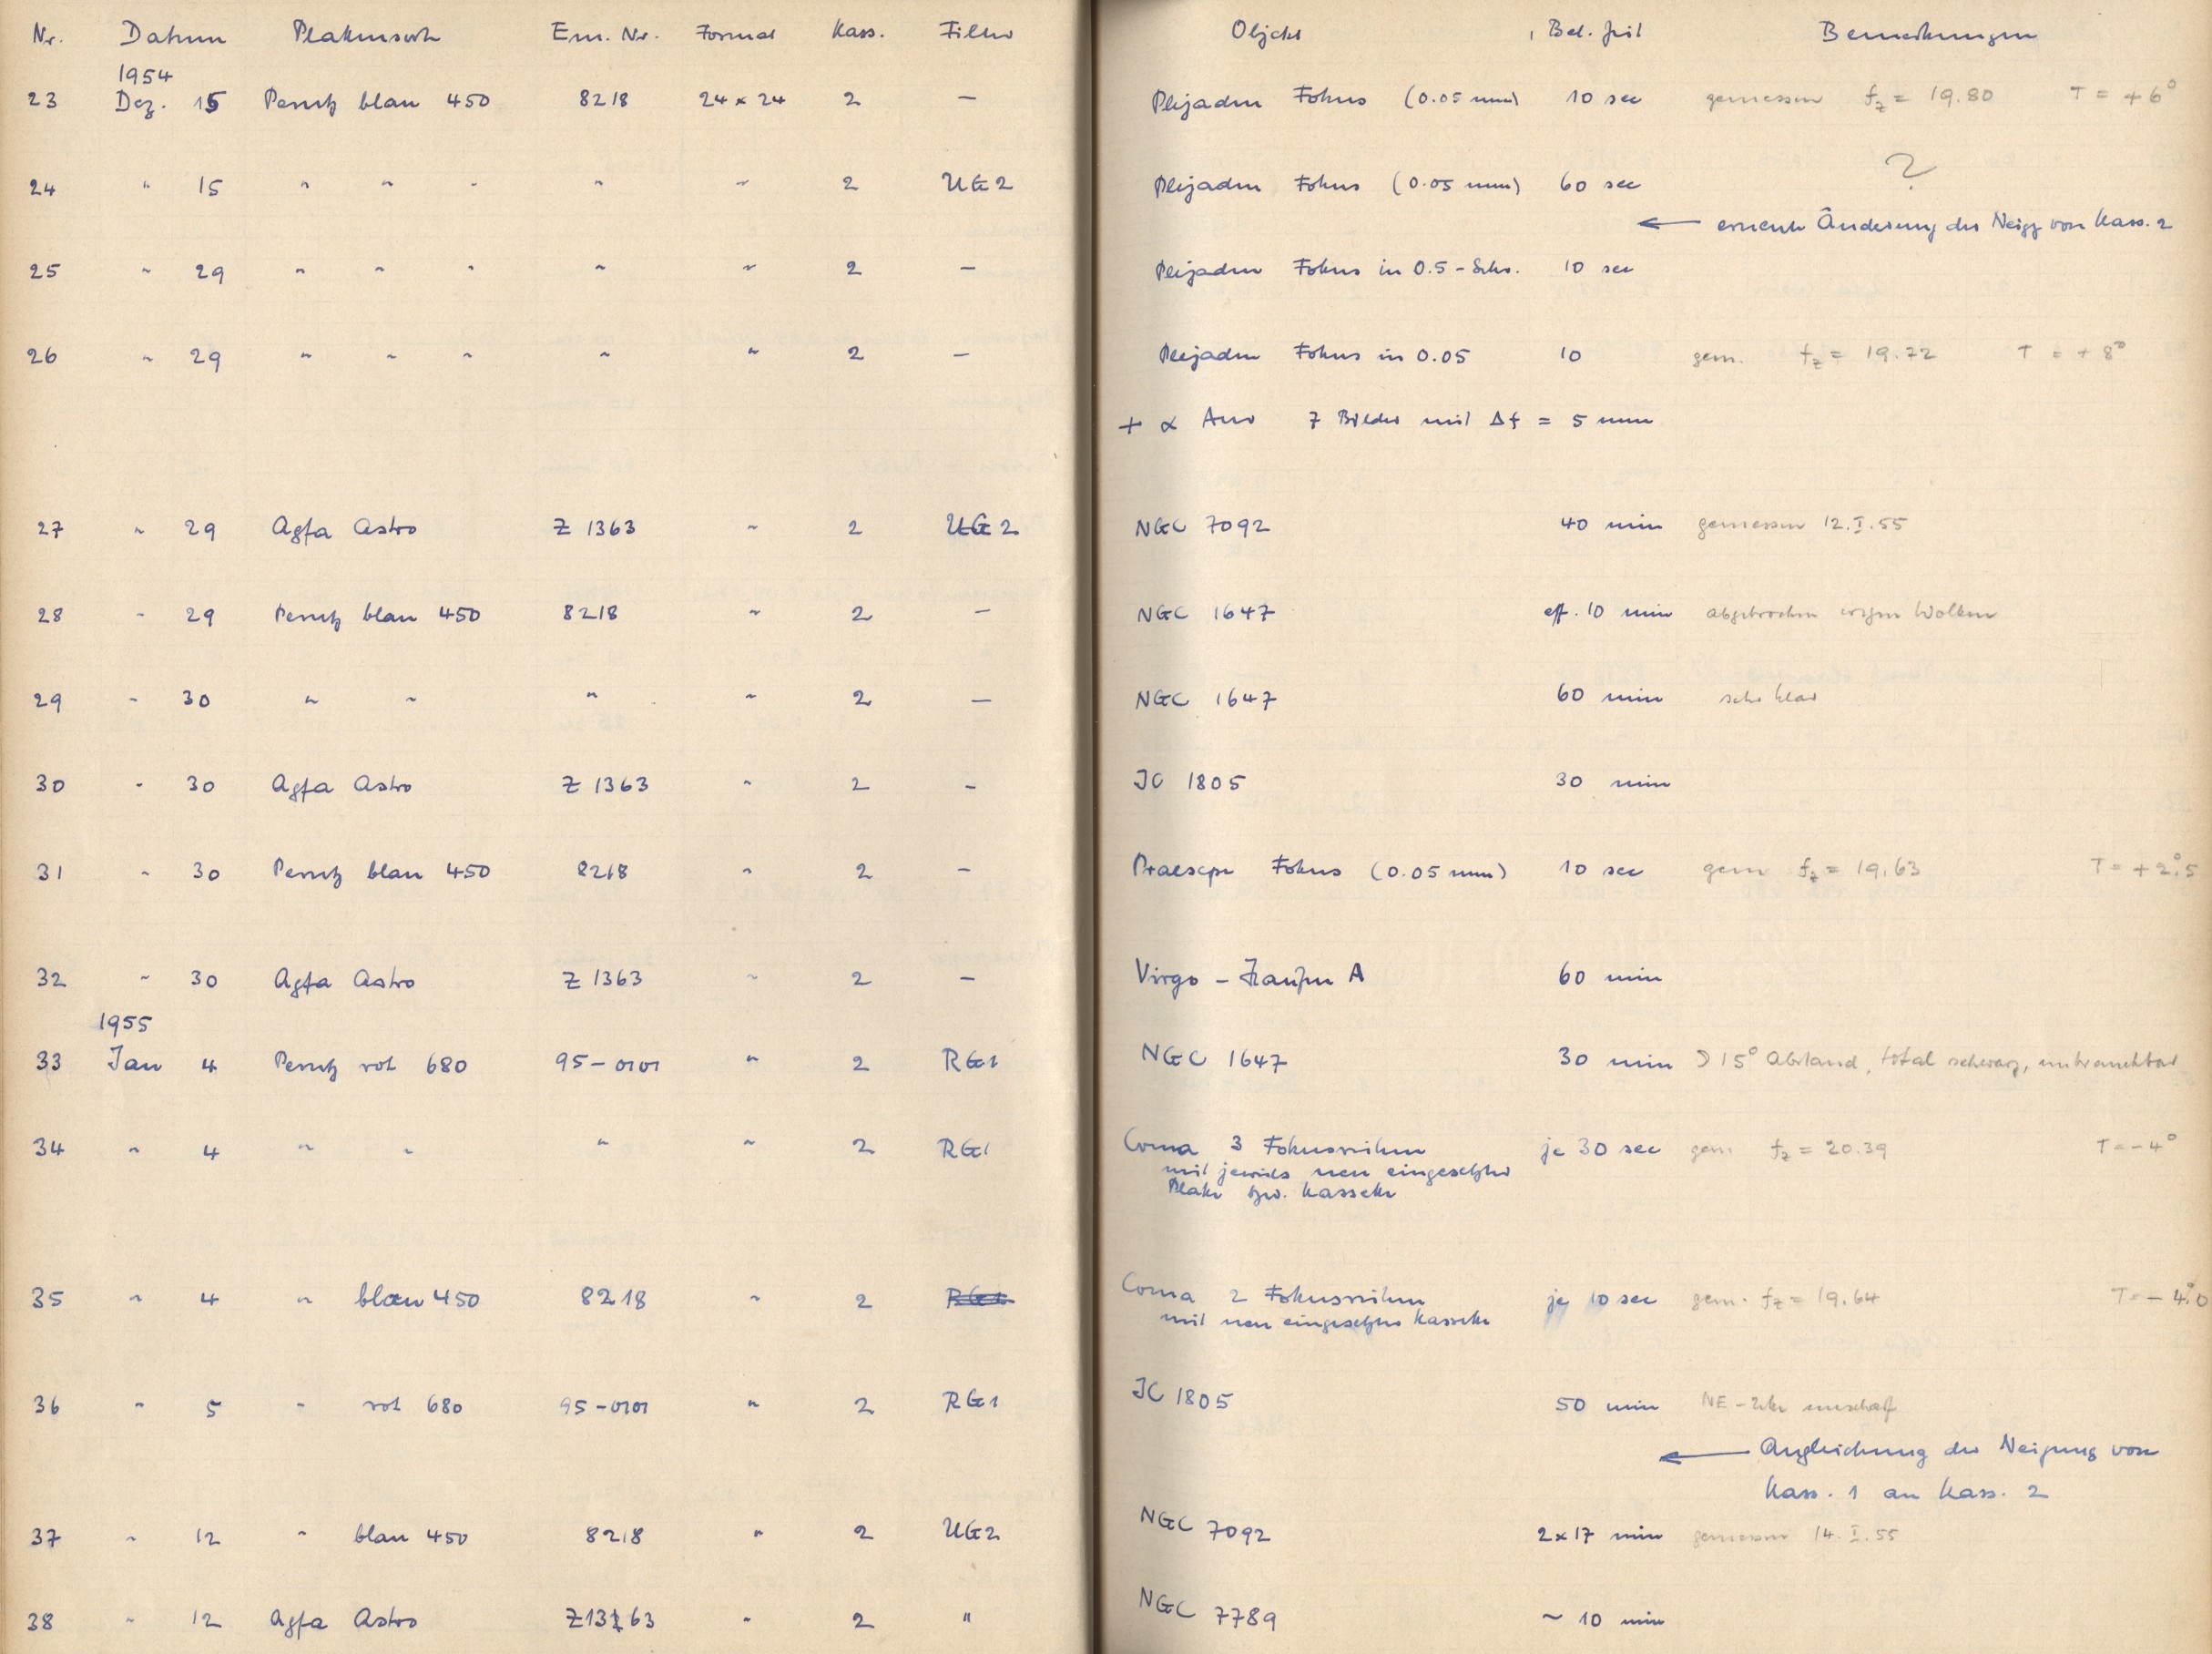 Nr. Datum Plattensorte Em. Nr. Format Kass. Filter Objekt Bel. Zeit Bemerkungen
1954
23 Dez. 15 Perutz blau 450 8218 24 x 24 2 — Plejaden Fokus (0.05 mm) 10 sec gemessen fz = 19.80 T = +6°
24 " 15 " " " " " 2 UG2 Plejaden Fokus (0.05 mm) 60 sec ?
← erneute Änderung der Neigg von Kass. 2
25 " 29 " " " " " 2 — Plejaden Fokus in 0.5 - Schr. 10 sec
26 " 29 " " " " " 2 — Plejaden Fokus in 0.05 10 gem. fz = 19.72 T = +8°
+ α Aur 7 Bilder mit Δf = 5 mm
27 " 29 Agfa Astro Z 1363 " 2 UG2 NGC 7092 40 min gemessen 12.I.55
28 " 29 Perutz blau 450 8218 " 2 — NGC 1647 eff. 10 min abgebrochen wegen Wolken
29 " 30 " " " " 2 — NGC 1647 60 min sehr klar
30 " 30 Agfa Astro Z 1363 " 2 - JC 1805 30 min
31 " 30 Perutz blau 450 8218 " 2 - Praesepe Fokus (0.05 mm) 10 sec gem fz = 19.63 T = +2°.5
32 " 30 Agfa Astro Z 1363 " 2 - Virgo - Haufen A 60 min
1955
33 Jan 4 Perutz rot 680 95-0101 " 2 RG1 NGC 1647 30 min ☽ 15° Abstand, total schwarz, unbrauchbar
34 " 4 " " " " 2 RG1 Coma 3 Fokusreihen je 30 sec gem fz = 20.39 T = -4°
mit jeweils neu eingesetzter
Platte bzw. Kassette
35 " 4 " blau 450 8218 " 2 RG1 Coma 2 Fokusreihen je 10 sec gem. fz = 19.64 T = -4°.0
mit neu eingesetzter Kassette
36 " 5 " rot 680 95-0101 " 2 RG1 JC 1805 50 min NE - unscharf
← Angleichung der Neigung von
Kass. 1 an Kass. 2
37 " 12 " blau 450 8218 " 2 UG2 NGC 7092 2x17 min gemessen 14.I.55
38 " 12 Agfa Astro Z 1363 " 2 " NGC 7789 ~ 10 min